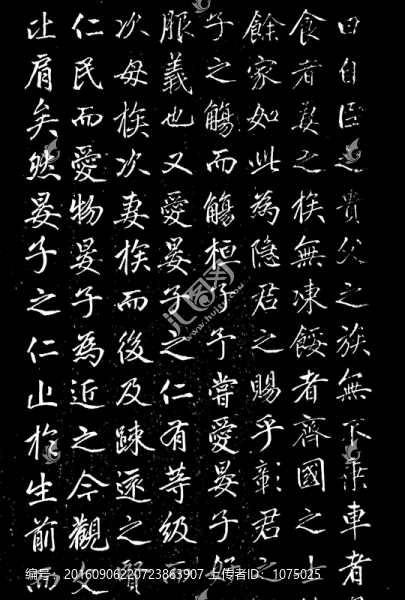 曰自臣之貴父之族無不乘車者
食者妻之族無凍餒者齊國之士
餘家如此為隐君之賜乎彰君之
子之觴而觴桓子予嘗愛晏子好
服義也又愛晏子之仁有等級而
次母族次妻族而後及踈遠之賢
仁民而愛物晏子為近之今觀文
比肩矣然晏子之仁止於生前而
编号:20160906220723863907 上传者ID:1075025